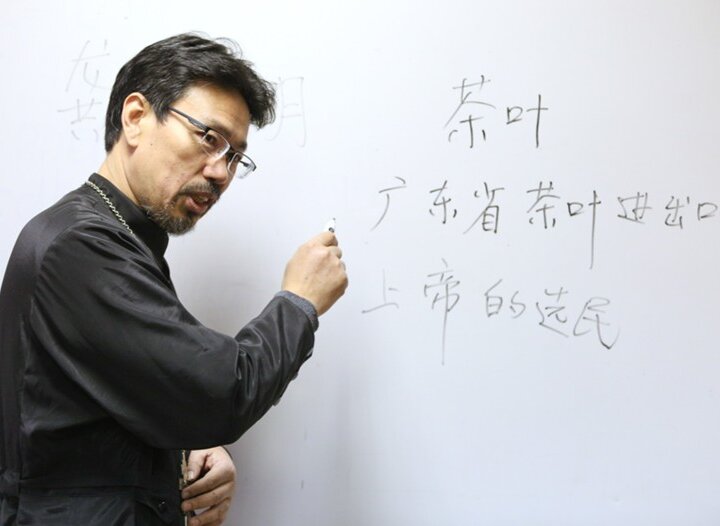 茶叶
广东省茶叶进出口
上帝的选民